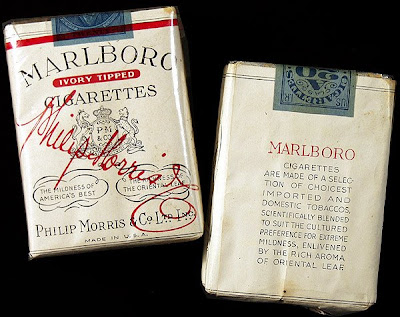 MARLBORO
IVORY TIPPED
CIGARETTES
PM
& CO
Philip Morris
THE MILDNESS OF
AMERICA'S BEST
THE ORIENTAL LEAF
PHILIP MORRIS & CO. LTD. INC.
MADE IN U.S.A.
US
IR
20
CIGARETTES
MARLBORO
CIGARETTES
ARE MADE OF A SELEC-
TION OF CHOICEST
IMPORTED AND
DOMESTIC TOBACCOS,
SCIENTIFICALLY BLENDED
TO SUIT THE CULTURED
PREFERENCE FOR EXTREME
MILDNESS, ENLIVENED
BY THE RICH AROMA
OF ORIENTAL LEAF